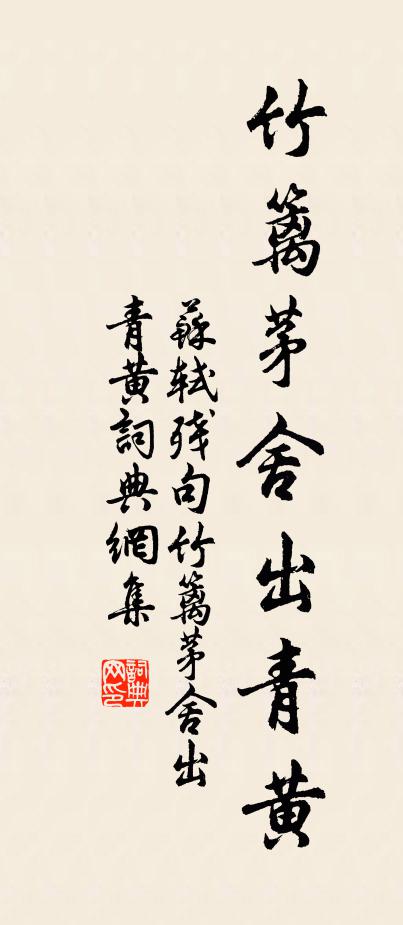 竹篱茅舍出青黃
蘇軾殘句竹篱茅舍出
青黃詞典網集
詞典
网印